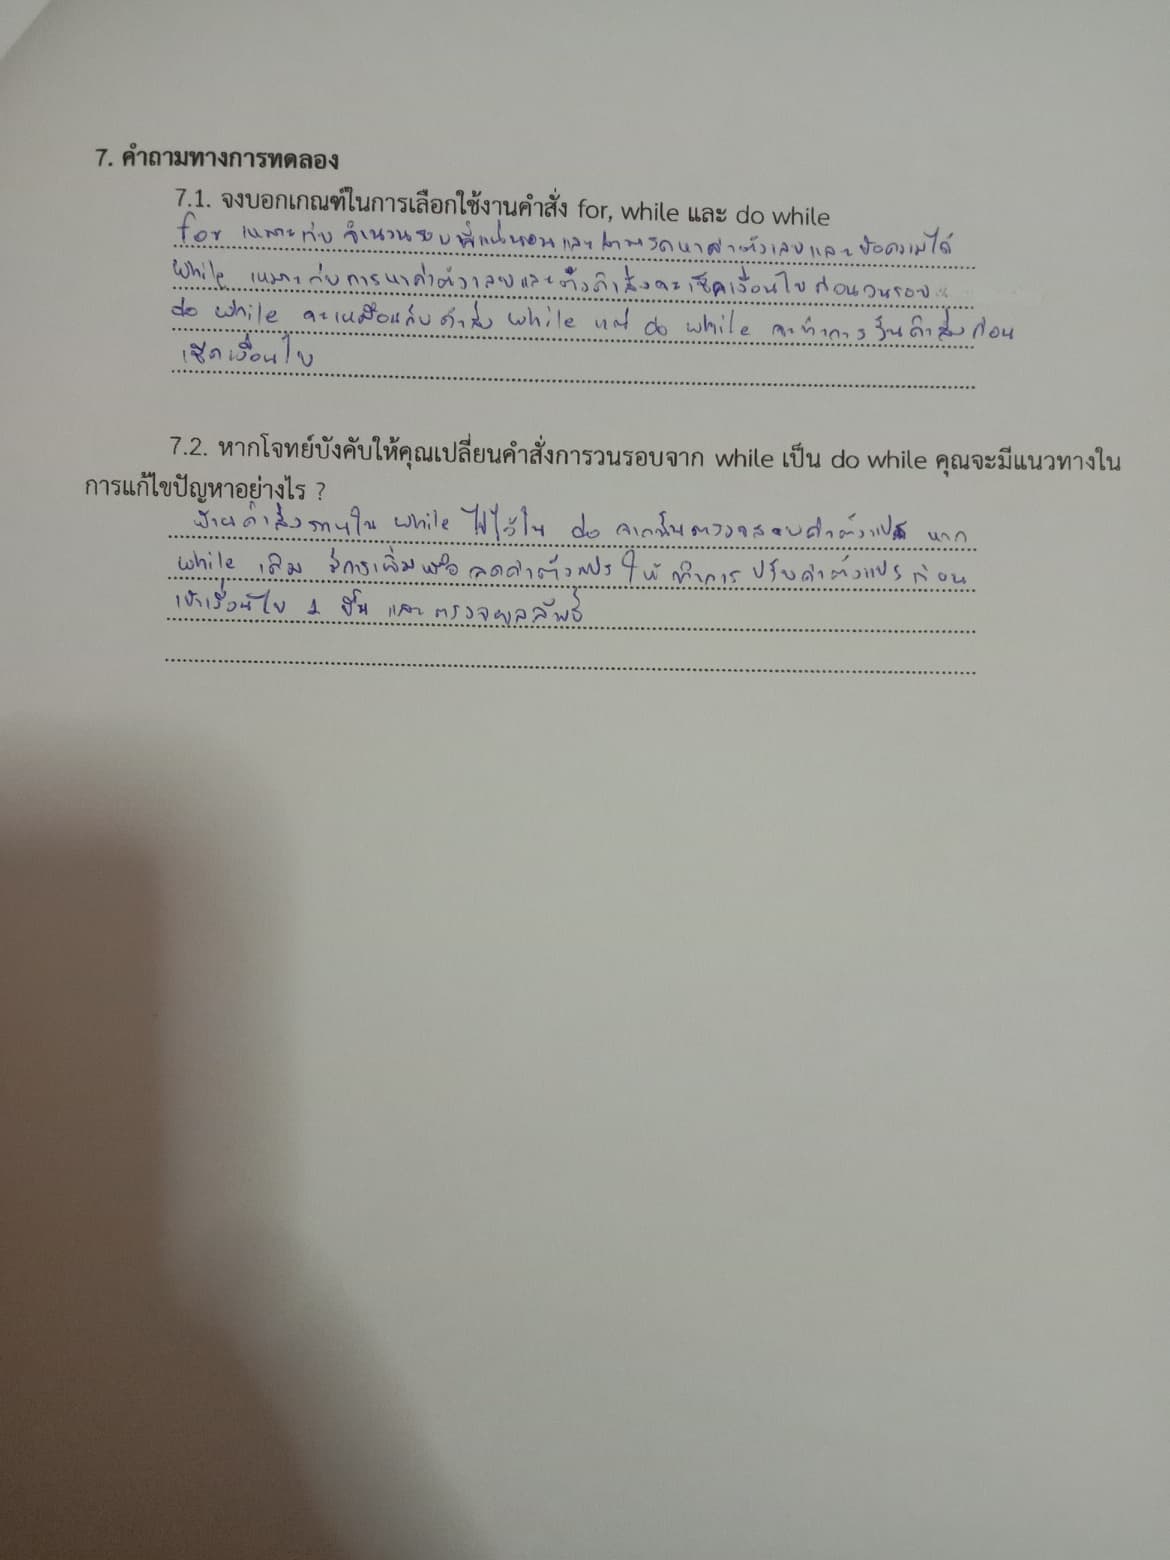 7. คำถามทางการทดลอง
7.1. จงบอกเกณฑ์ในการเลือกใช้งานคำสั่ง for, while และ do while
for เหมาะกับ จำนวนรอบที่แน่นอนและสามารถหาค่าตัวเลขและข้อความได้
while เหมาะกับการหาค่าตัวเลขและตัวคำสั่งจะเช็คเงื่อนไขก่อนวนรอบ
do while จะเหมือนกับคำสั่ง while แต่ do while จะทำการรันคำสั่งก่อน
เช็คเงื่อนไข
7.2. หากโจทย์บังคับให้คุณเปลี่ยนคำสั่งการวนรอบจาก while เป็น do while คุณจะมีแนวทางใน
การแก้ไขปัญหาอย่างไร ?
ย้ายคำสั่งงานใน while ไปไว้ใน do จากนั้นตรวจสอบค่าตัวแปร หาก
while เดิม มีการเพิ่มหรือ ลดค่าตัวแปร ให้ ทำการ ปรับค่าตัวแปร ก่อน
เข้าเงื่อนไข 1 ขั้น และ ตรวจผลลัพธ์